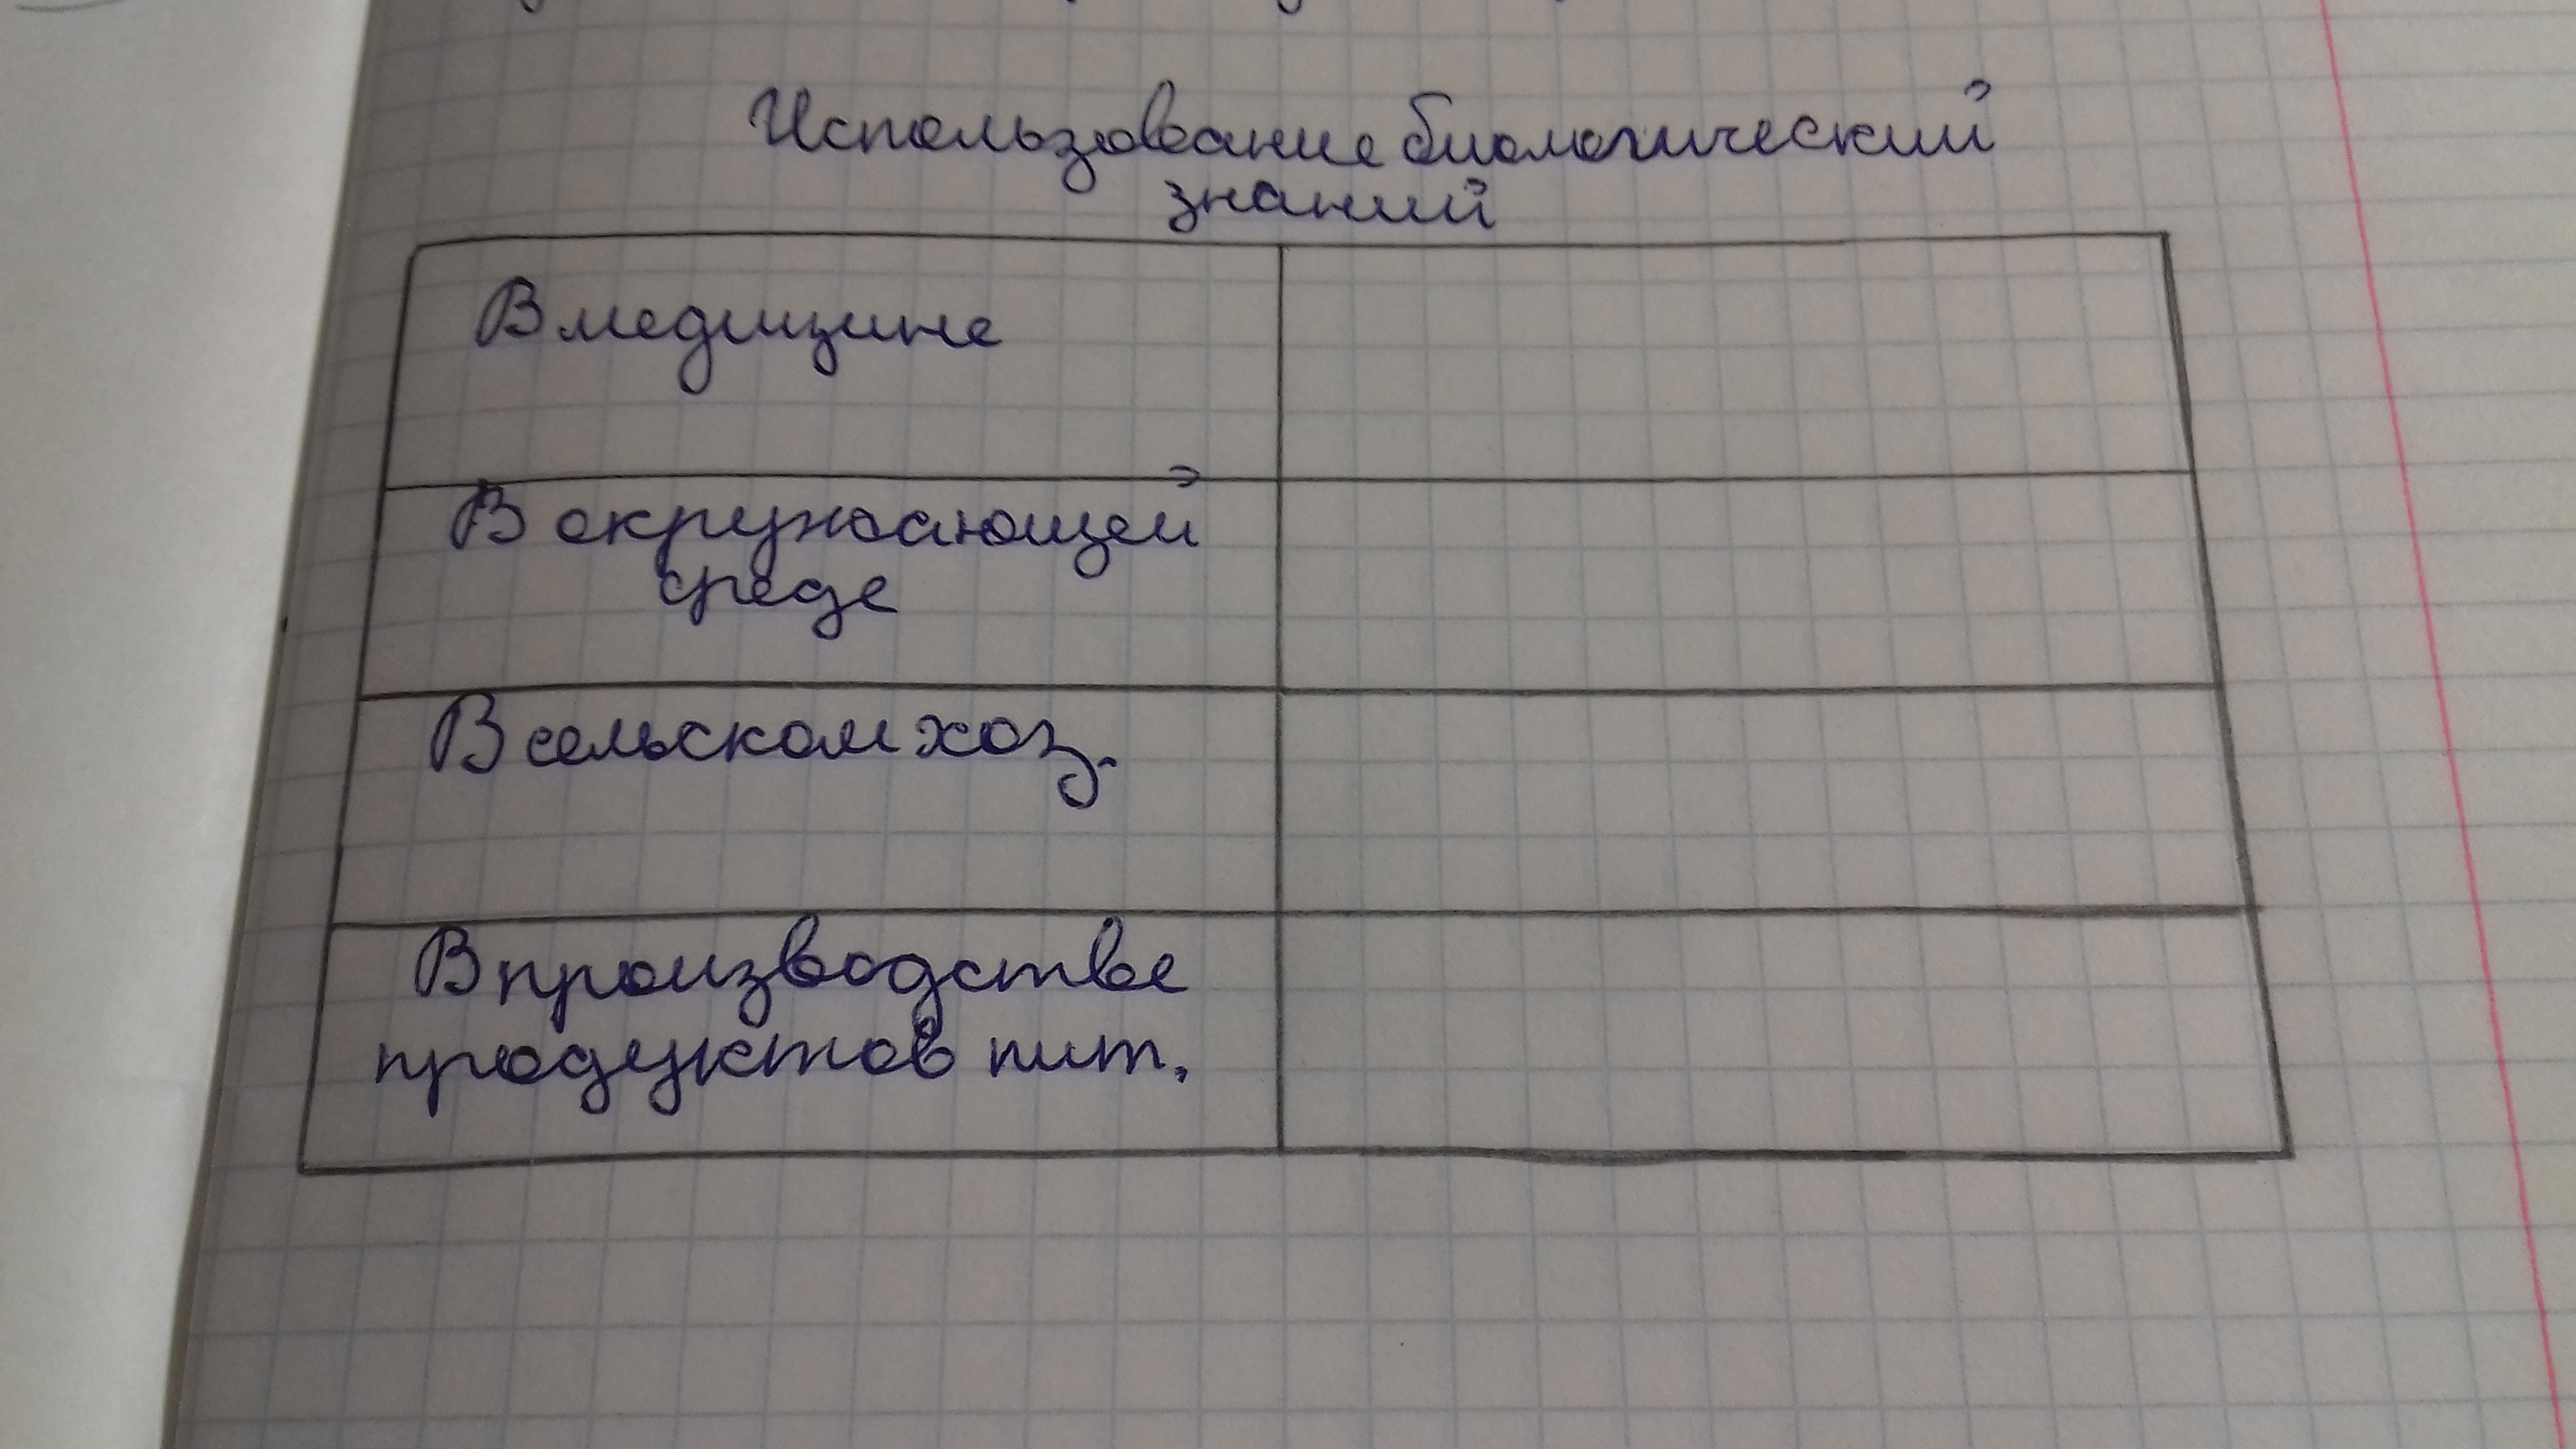 Использование биологический
знаний
В медицине
В окружающей
среде
В сельском хоз.
В производстве
продуктов пит.